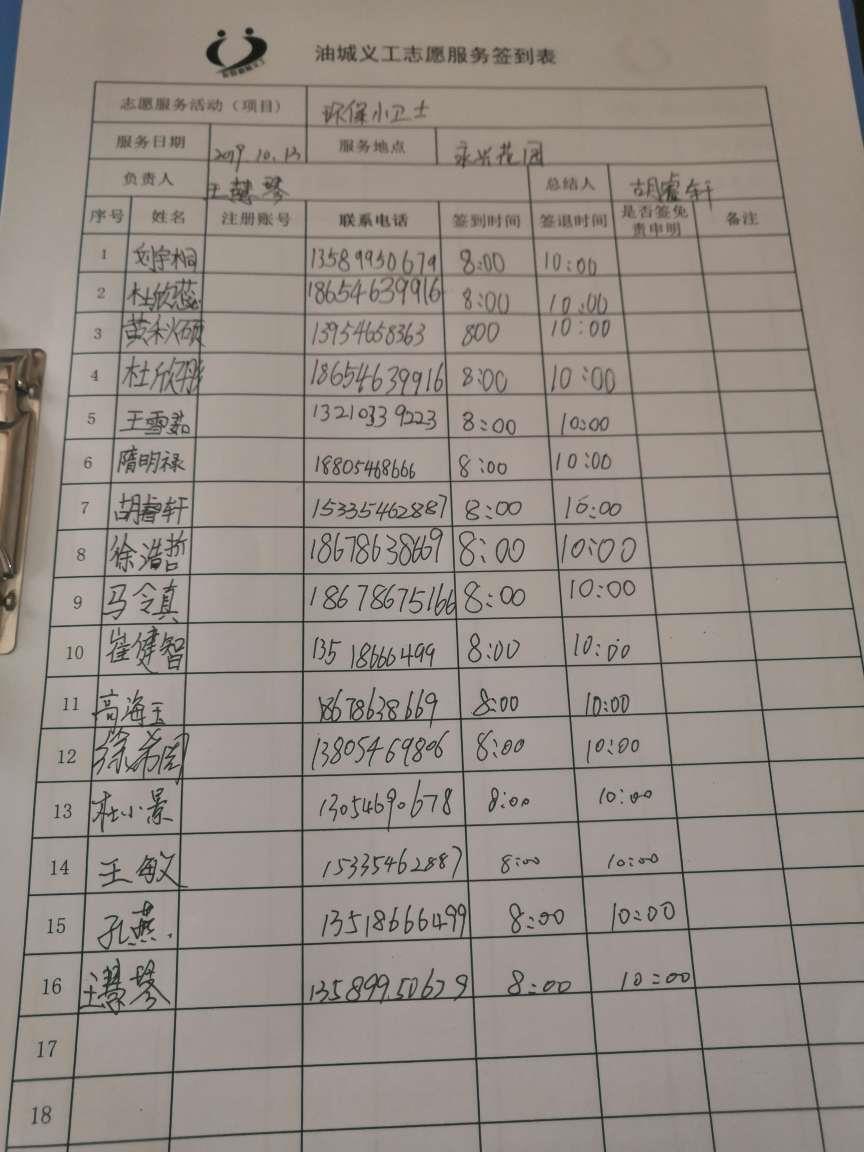 油城义工志愿服务签到表
志愿服务活动（项目） 环保小卫士
服务日期 2019.10.13 服务地点 永兴花园
负责人 王慧琴 总结人 胡睿轩
序号 姓名 注册账号 联系电话 签到时间 签退时间 是否签免责申明 备注
1 刘宇桐 13589950679 8:00 10:00
2 杜欣蕊 18654639916 8:00 10:00
3 黄禾硕 13954658363 800 10:00
4 杜欣彤 18654639916 8:00 10:00
5 王雪茹 13210339223 8:00 10:00
6 隋明禄 18805468666 8:00 10:00
7 胡睿轩 15335462887 8:00 10:00
8 徐浩哲 18678638669 8:00 10:00
9 马令真 18678675166 8:00 10:00
10 崔健智 13518666499 8:00 10:00
11 高海玉 18678638669 8:00 10:00
12 徐希周 13805469806 8:00 10:00
13 杜小景 13054690678 8:00 10:00
14 王敏 15335462887 8:00 10:00
15 孔燕 13518666499 8:00 10:00
16 王慧琴 13589950679 8:00 10:00
17
18